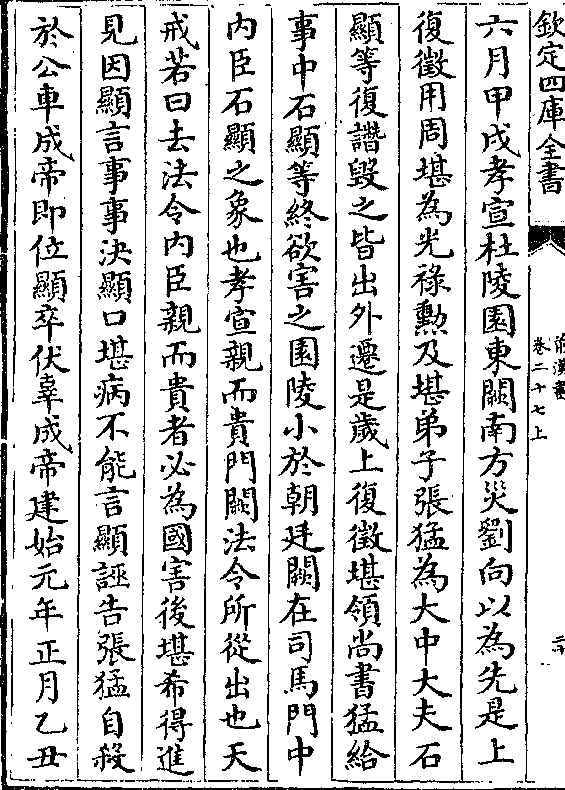 欽定四庫全書
前漢書
卷二十七上
六月甲戌孝宣杜陵園東闕南方災劉向以為先是上
復徵用周堪為光祿勲及堪弟子張猛為大中大夫石
顯等復譖毀之皆出外遷是歲上復徵堪領尚書猛給
事中石顯等終欲害之園陵小於朝廷闕在司馬門中
内臣石顯之象也孝宣親而貴門闕法令所從出也天
戒若曰去法令内臣親而貴者必為國害後堪希得進
見因顯言事事決顯口堪病不能言顯誣告張猛自殺
於公車成帝即位顯卒伏辜成帝建始元年正月乙丑